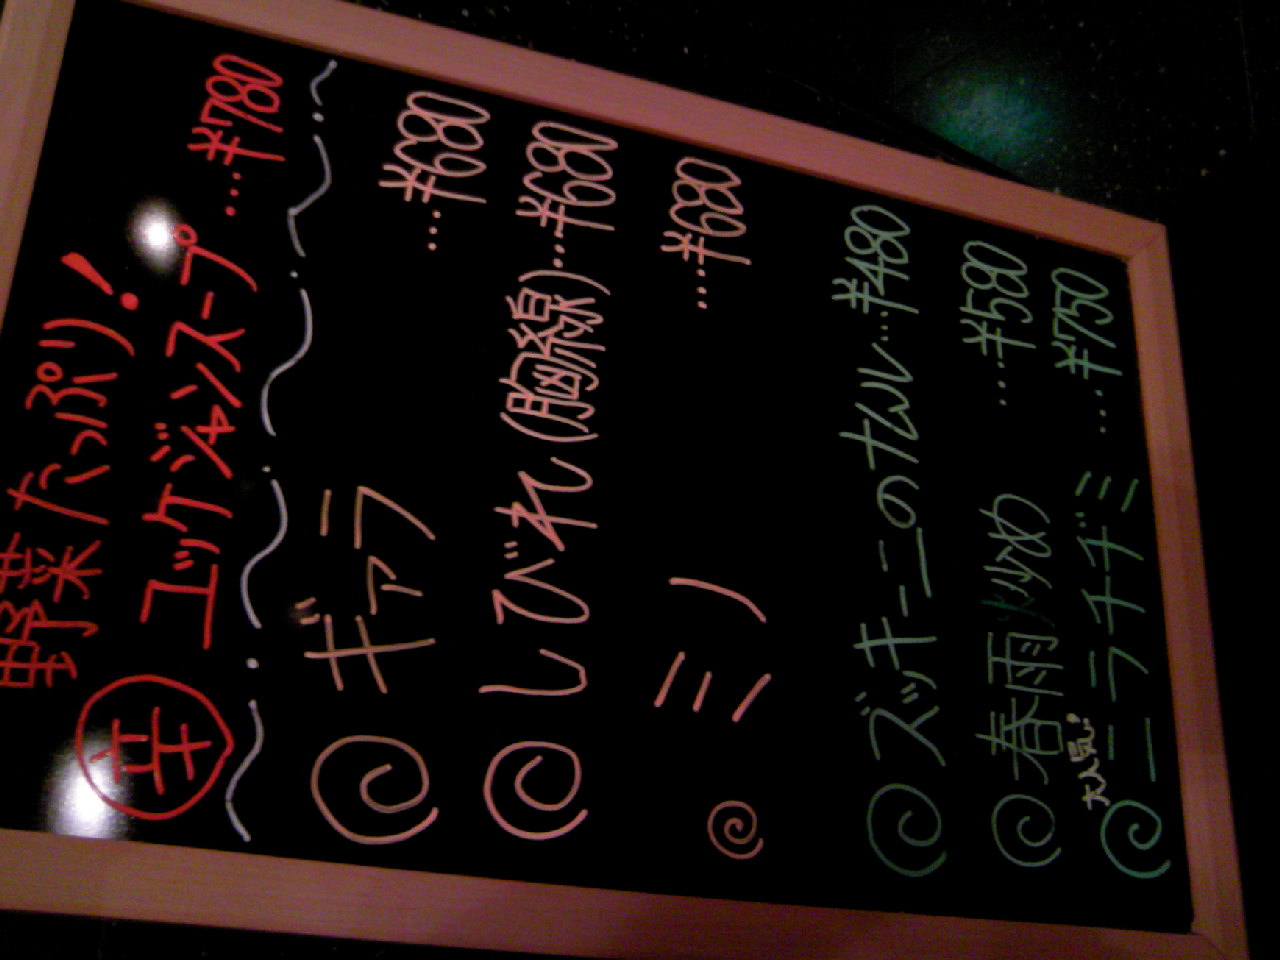 野菜たっぷり!
辛 ユッケジャンスープ …¥780
ギァラ …¥680
しびれ(胸線)…¥680
ミノ …¥680
ズッキーニのナムル…¥480
春雨炒め …¥580
大人気!
ニラチヂミ …¥750